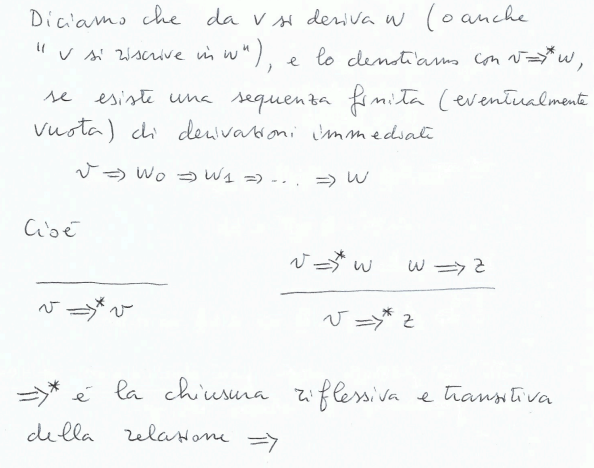 Diciamo che da v si deriva w (o anche
"v si riscrive in w"), e lo denotiamo con v ⇒* w,
se esiste una sequenza finita (eventualmente
vuota) di derivazioni immediate
v ⇒ w₀ ⇒ w₁ ⇒ ... ⇒ w
Cioè
v ⇒* w   w ⇒ z
v ⇒* v
v ⇒* z
⇒* è la chiusura riflessiva e transitiva
della relazione ⇒